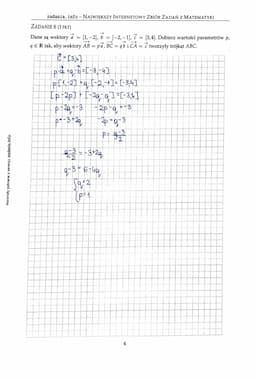 zadania.info – Największy Internetowy Zbiór Zadań z Matematyki
Zadanie 6 (3 pkt)
Dane są wektory a⃗ = [1, -2], b⃗ = [-2, -1], c⃗ = [3, 4]. Dobierz wartości parametrów p,
q ∈ R tak, aby wektory AB = pa⃗, BC = qb⃗ i CA = c⃗ tworzyły trójkąt ABC.
c⃗ = [3,4]
p·a⃗ + q·b⃗ = [-3,-4]
p[1,-2] + q·[-2,-1] = [-3,4]
[p -2p] + [-2q -q] = [-3,4]
p-2q = -3 -2p -q = -3
p = -3+2q -2p = q-3
= -3+2q
q-3 = 6-4q
q=2
p=1
Materiały pobrane z serwisu zadania.info
6